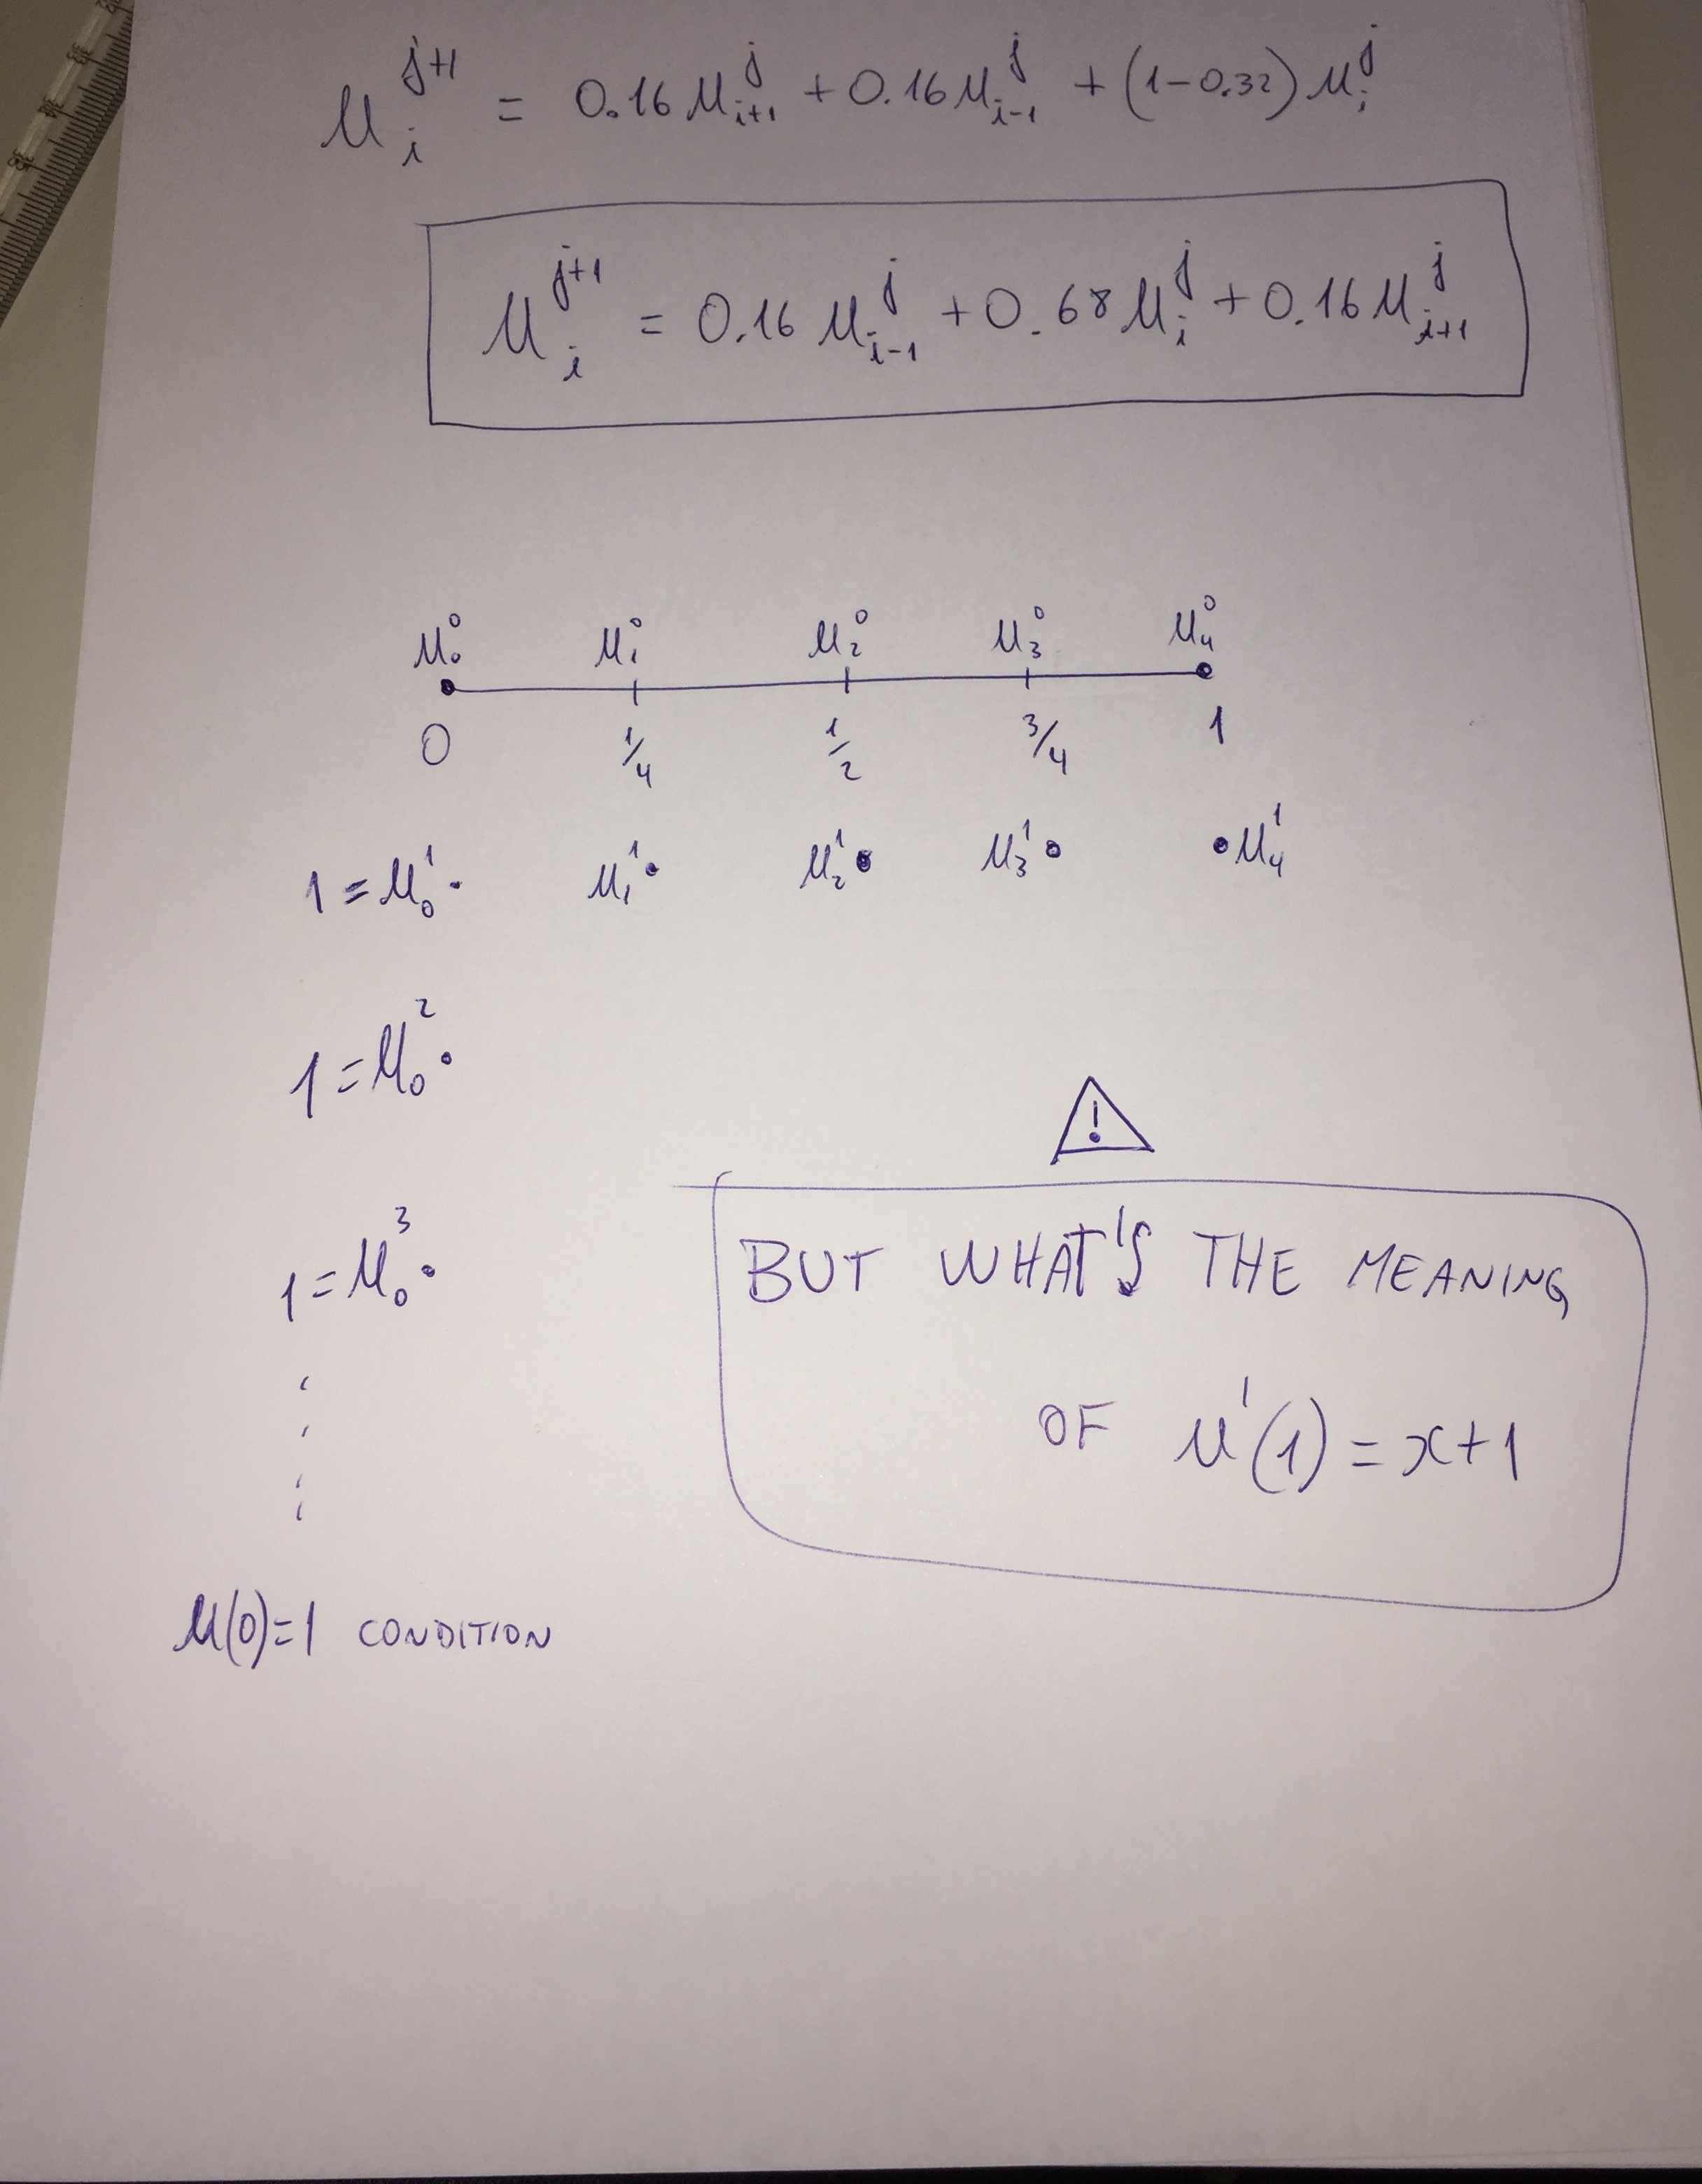 u_i^{j+1} = 0.16 u_{i+1}^j + 0.16 u_{i-1}^j + (1-0.32) u_i^j
u_i^{j+1} = 0.16 u_{i-1}^j + 0.68 u_i^j + 0.16 u_{i+1}^j
u_0^0 u_1^0 u_2^0 u_3^0 u_4^0
0 1/4 1/2 3/4 1
1 = u_0^1 u_1^1 u_2^1 u_3^1 u_4^1
1 = u_0^2
!
1 = u_0^3
BUT WHAT'S THE MEANING
OF u'(1) = x+1
u(0)=1 CONDITION